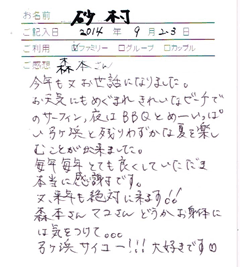 お名前 砂村
ご記入日 2014年9月23日
ご利用 ☑ファミリー □グループ □カップル
ご感想 森本さん
今年も又お世話になりました。
お天気にもめぐまれ きれいなビーチで
のサーフィン,夜はBBQとめーいっぱ
い弓ヶ浜と残りわずかな夏を楽し
むことが出来ました。
毎年毎年とても良くしていただき
本当に感謝です。
又、来年も絶対に来ます!!
森本さん マコさん どうかお身体に
は気をつけて。。。
弓ヶ浜サイコー!!!大好きです